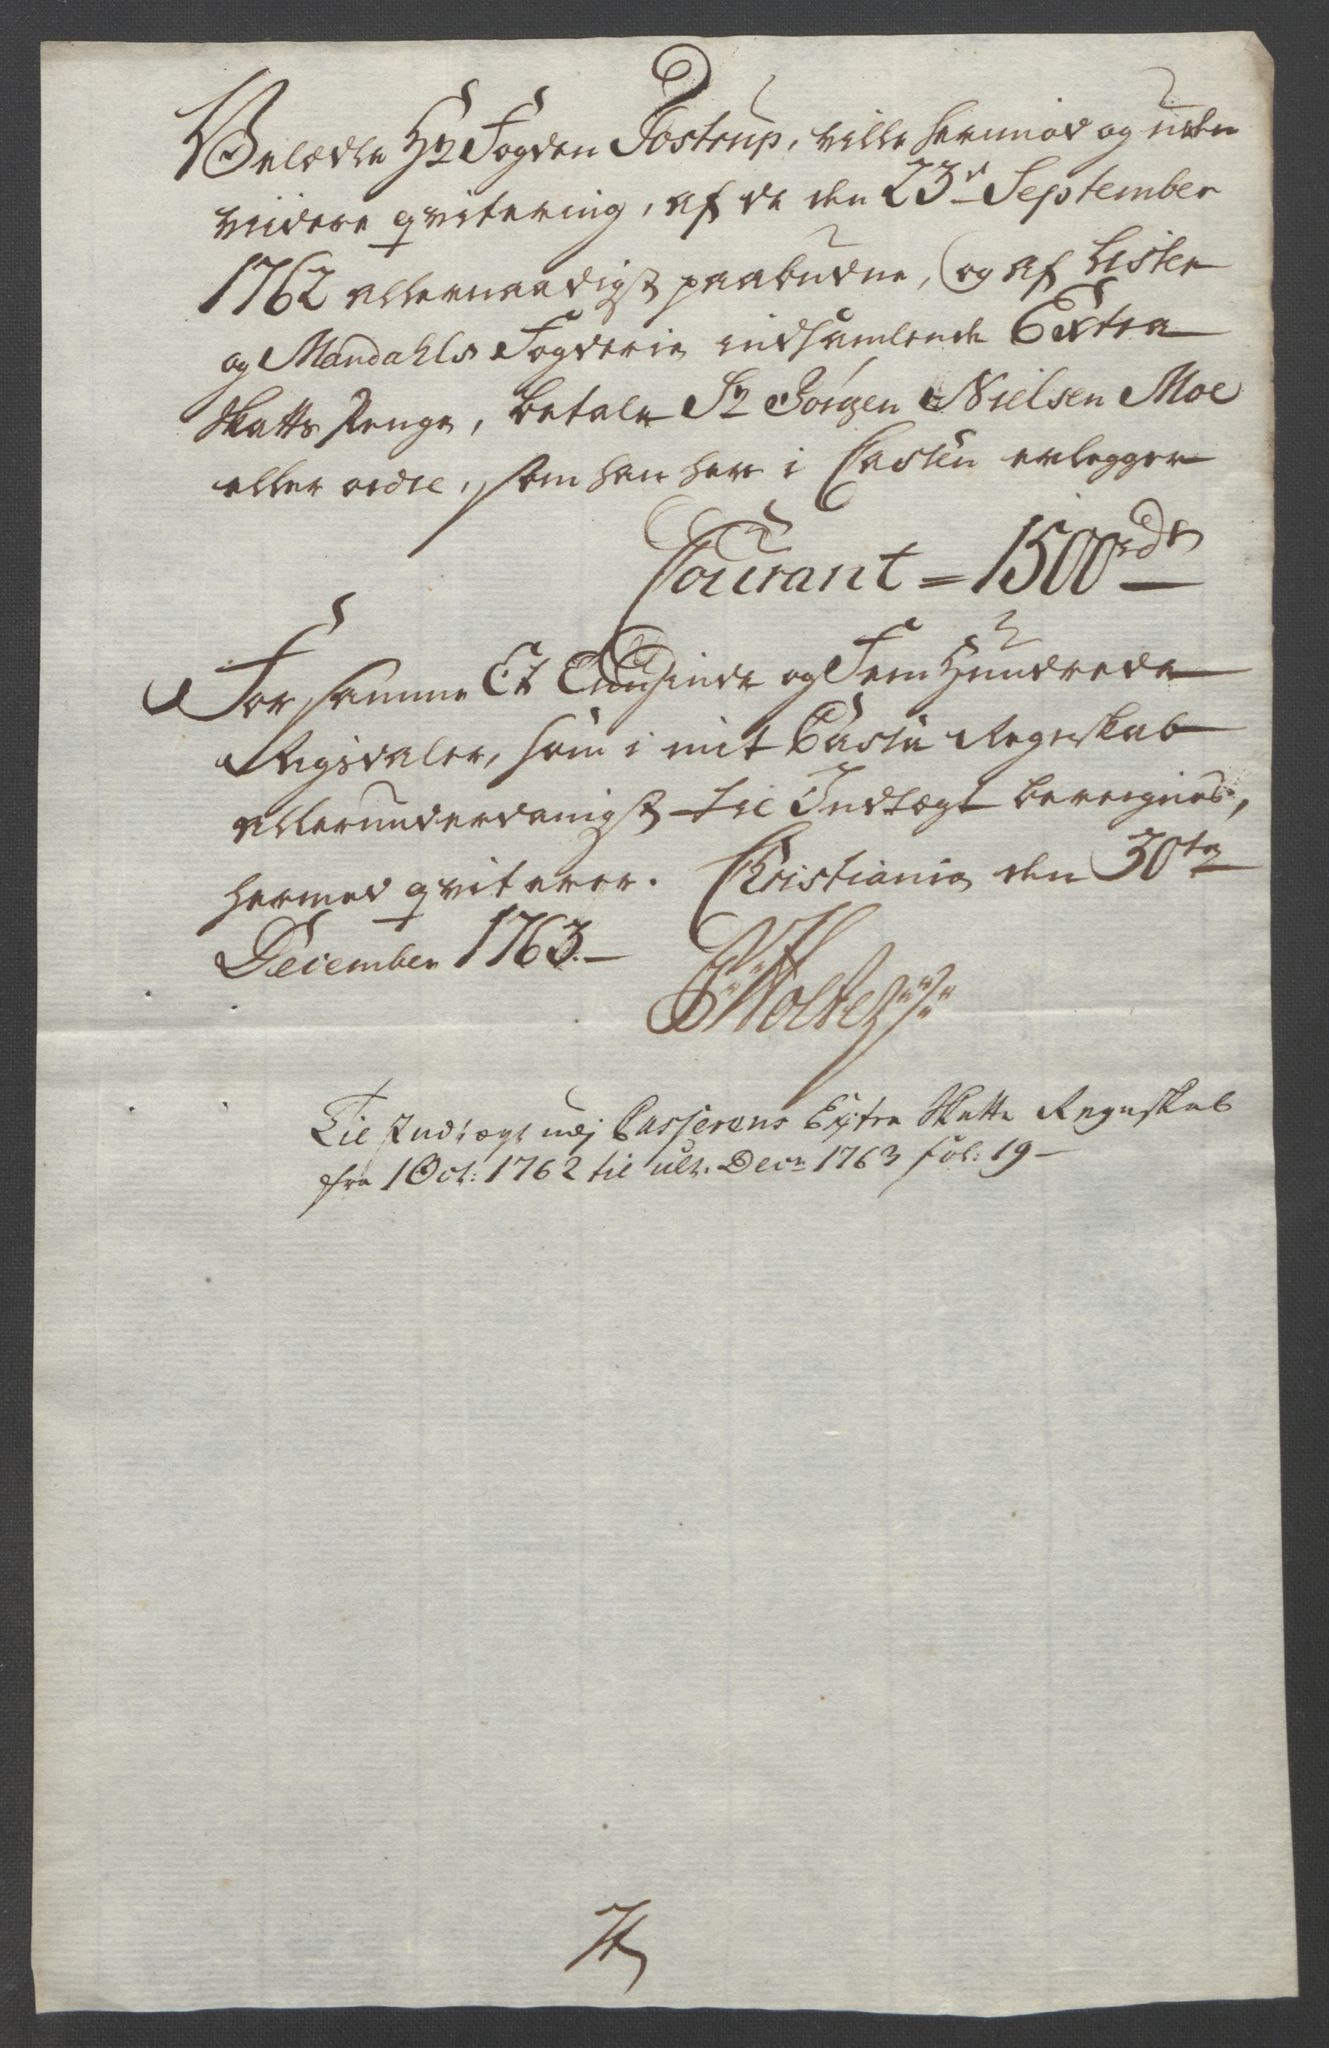 Velædle Hr Fogden Tostrup, ville herimod og uden
viidere qvitering, af de den 23d September
1762 allernaadigst paabudne, og af Lister
og Mandahls Fogderie indsamlende Extra
Skatts Penge, betale Sr Jørgen Nielsen Moe
eller ordre, som han her i Cassen erlegger
Courant = 1500 rdr
For samme Et Tuusinde og Fem Hundrede
Rigsdaler, som i mit Cassa Regnskab
allerunderdanigst til Indtægt beregnes,
hermed qviterer. Christiania den 30te
December 1763.
Til Indtægt udj Casserens Extra Skatte Regnskab
fra 1 Oct: 1762 til ult. Decr 1763 fol: 19